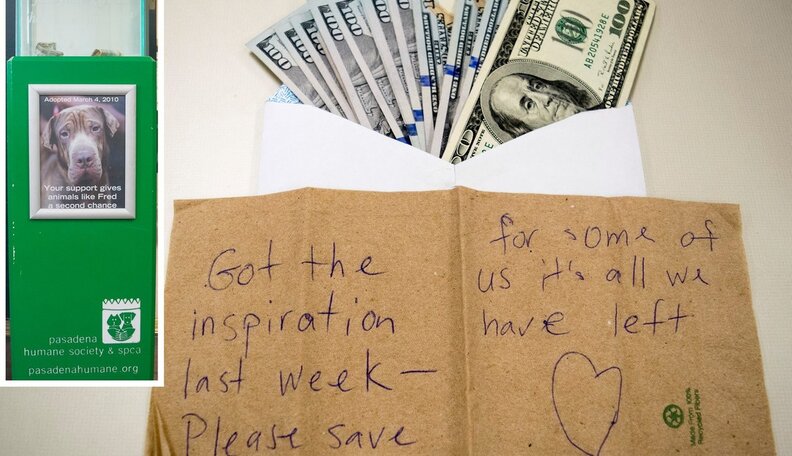 Adopted March 4, 2010
Your support gives
animals like Fred
a second chance
pasadena
humane society & spca
pasadenahumane.org
100
100
100
100
100
AB 20541928 E
Got the
inspiration
last week —
Please save
for some of
us it's all we
have left
Made From 100%
Recycled Fibers